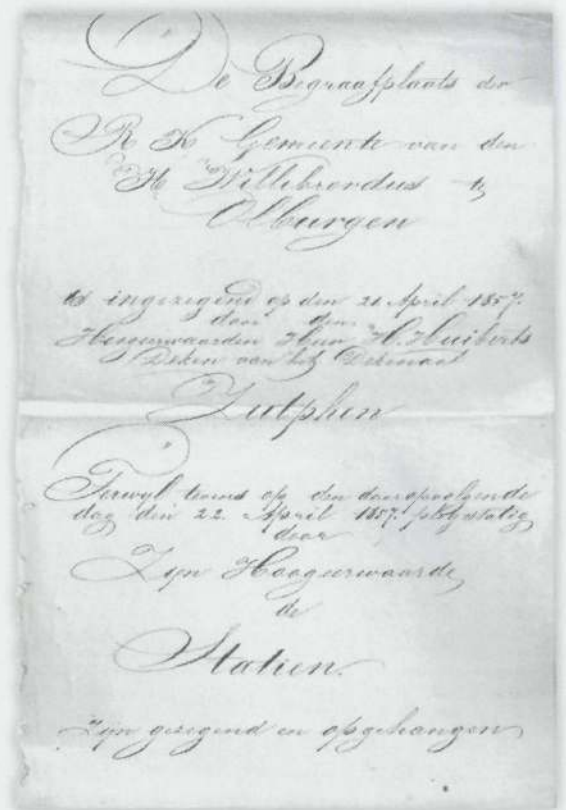 De Begraafplaats der
R K Gemeente van den
H Willibrordus te
Olburgen
is ingezegend op den 21 April 1857.
door den
Hoogeerwaarden Heer H. Huiberts
Deken van het Dekenaat
Zutphen
Terwyl tevens op den daaropvolgende
dag den 22. April 1857. plegtstatig
door
Zyn Hoogeerwaarde
de
Statien.
Zyn gezegend en opgehangen